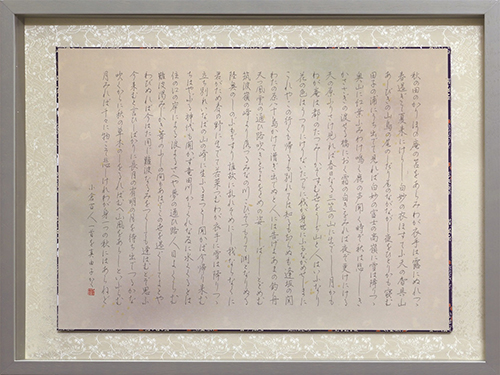 秋の田のかりほの庵の苫をあらみわが衣手は露にぬれつつ
春過ぎて夏来にけらし白妙の衣ほすてふ天の香具山
あしびきの山鳥の尾のしだり尾のながながし夜をひとりかも寝む
田子の浦にうち出でて見れば白妙の富士の高嶺に雪は降りつつ
奥山に紅葉ふみわけ鳴く鹿の声聞く時ぞ秋は悲しき
かささぎの渡せる橋におく霜の白きをみれば夜ぞ更けにける
天の原ふりさけ見れば春日なる三笠の山に出でし月かも
わが庵は都のたつみしかぞすむ世をうぢ山と人はいふなり
花の色はうつりにけりないたづらに我が身世にふるながめせしまに
これやこの行くも帰るも別れては知るも知らぬも逢坂の関
わたの原八十島かけて漕ぎ出でぬと人には告げよあまの釣舟
天つ風雲の通ひ路吹きとぢよをとめの姿しばしとどめむ
筑波嶺の峰より落つるみなの川恋ぞつもりて淵となりぬる
陸奥のしのぶもぢずり誰故に乱れそめにし我ならなくに
君がため春の野に出でて若菜つむわが衣手に雪は降りつつ
立ち別れいなばの山の峰に生ふるまつとし聞かば今帰り来む
ちはやぶる神代も聞かず竜田川からくれなゐに水くくるとは
住の江の岸による波よるさへや夢の通ひ路人目よくらむ
難波潟みじかき葦の節の間もあはでこの世を過ぐしてよとや
わびぬれば今はた同じ難波なるみをつくしても逢はむとぞ思ふ
今来むと言ひしばかりに長月の有明の月を待ち出でつるかな
吹くからに秋の草木のしをるればむべ山風をあらしといふらむ
月みれば千々に物こそ悲しけれわが身一つの秋にはあらねど
小倉百人一首を